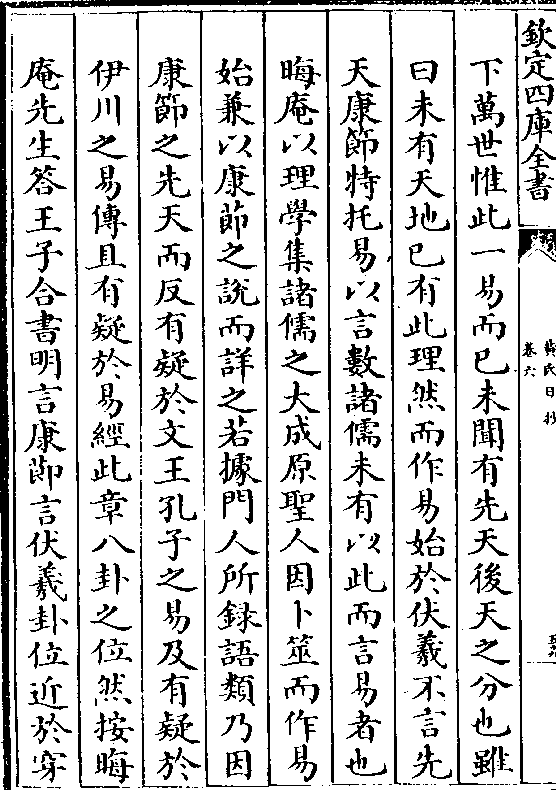 欽定四庫全書
黃氏日抄
卷六
下萬世惟此一易而已未聞有先天後天之分也雖
曰未有天地已有此理然而作易始於伏羲不言先
天康節特托易以言數諸儒未有以此而言易者也
晦庵以理學集諸儒之大成原聖人因卜筮而作易
始兼以康節之說而詳之若據門人所録語類乃因
康節之先天而反有疑於文王孔子之易及有疑於
伊川之易傳且有疑於易經此章八卦之位然按晦
庵先生答王子合書明言康節言伏羲卦位近於穿